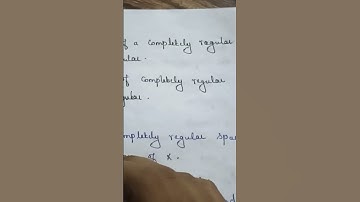 of a completely regular
of completely regular
completely regular spa
of X.